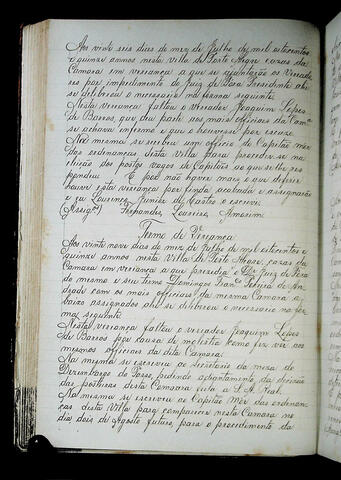 Aos vinte seis dias do mez de Julho de mil oitocentos
e quinze annos nesta villa de Porto Alegre cazas da
Camara em vereança a que se ajuntarão os Vereado-
res por impedimento do Juiz de Fora Presidente ahi
se deliberou o necessario na forma seguinte
Nesta vereança faltou o vereador Joaquim Lopes
de Barros, que deu parte aos mais officiaes da Camª
se achava infermo e que o houvesse por escuzo
Na mesma se recebeu um officio do Capitão mór
das ordenanças desta Villa para proceder-se na
eleição dos postos vagos de Capitães ao que se lhe res-
pondeu. E por não haver mais o que deferir
houve esta vereança por finda acabada e assignarão
e eu Lourenço Junior de Castro o escrevi.
(Assig.) Fernandes, Loureiro, Amorim
Termo de Vereança
Aos vinte nove dias do mez de Julho de mil oitocentos e
quinze annos nesta Villa de Porto Alegre, cazas da
Camara em vereança a que prezedio o Dr. Juiz de Fora
do mesmo e seu Termo Domingos Francº Pereira de An-
drade com os mais officiaes da mesma Camara a-
baixo assignados ahi se deliberou o necessario na for
ma seguinte
Nesta vereança faltou o vereador Joaquim Lopes
de Barros por causa de molestia como fez ver aos
mesmos officiaes da dita Camara.
Na mesma se escreveu ao Secretario da meza do
Dezembargo do Passo, pedindo adiantamento da decizão
das posturas desta Camara feita a S. A. Real.
Na mesma se escreveu ao Capitão Mór das ordenan-
ças desta Villa para comparecer nesta Camara no
dia dois de Agosto futuro, para o procedimento da